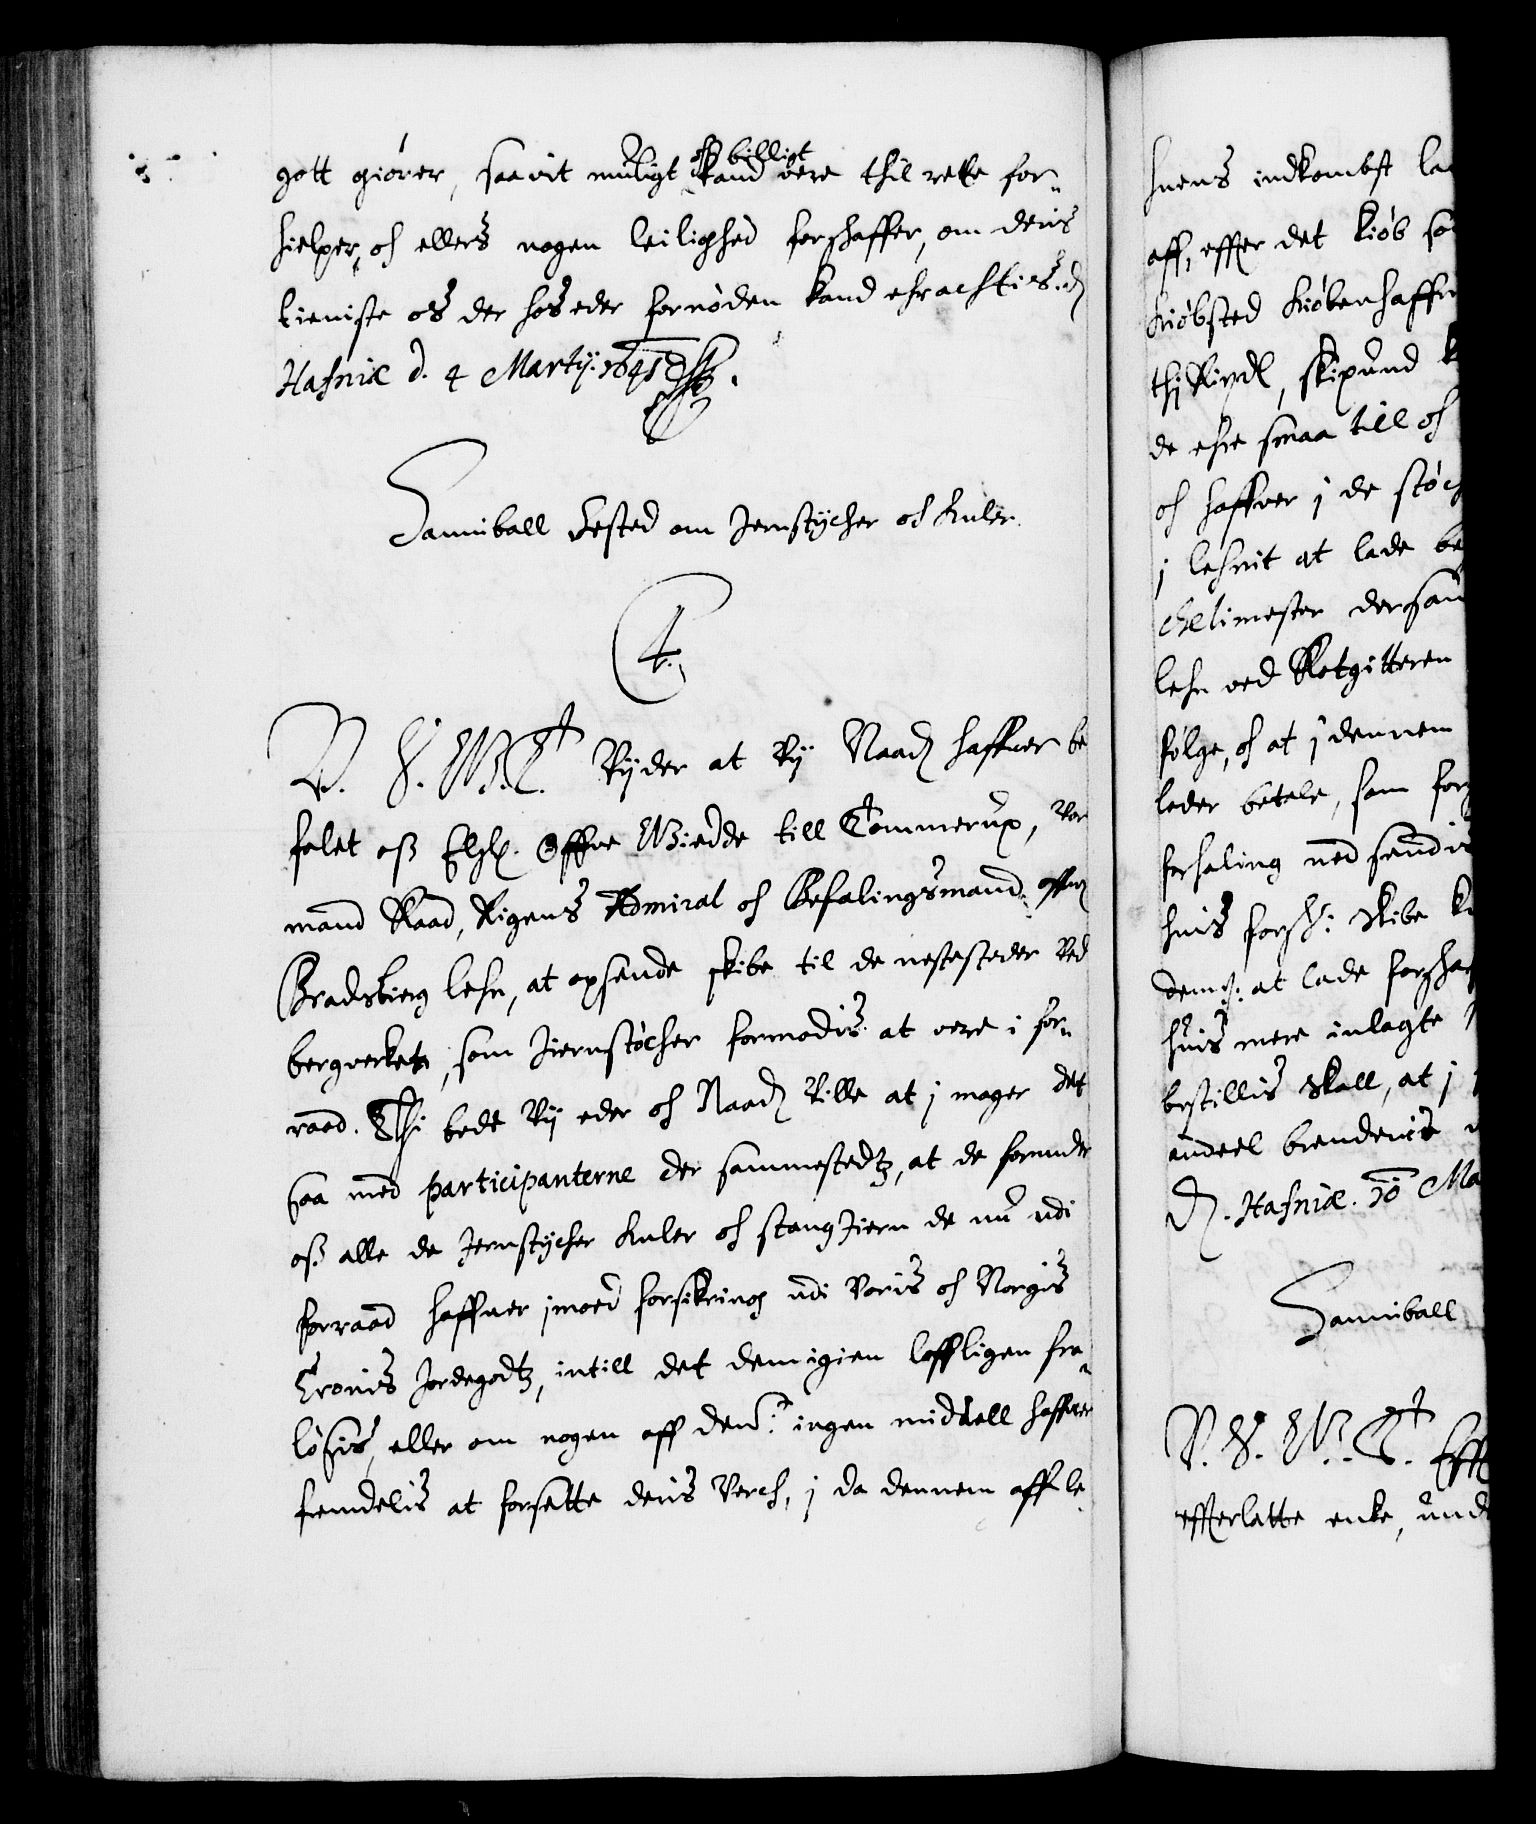 gott giörer, saavit muligt och billigt kand vere thil rette for-
hielper, och ellers nogen leilighed forschaffer, om deris
tieniste os der hos eder fornøden kand ehrachtis. d
Hafniæ d. 4 Martij. 1645
Hanniball Sested om Jernstycher och Kuler.
C 4.
V. S. G. T. Vijder at Vij Naad haffver be
falet oß Elsk. Offve Giedde till Tommerup, vor
mand Raad, Rigens Admiral och Befalingsmand offver
Bradsbierg lehn, at opsende skibe til de nestesteder ved
bergverket, som Jiernstöcher formodis at vere i for-
raad. Thi bede Vij eder och Naad Ville at j mager det
saa med participanterne der sammestedtz, at de forunder
oß alle de Jernstycher Kuler och stangJiern de nu udi
forraad haffver imoed forsikring udi Voris och Norgis
Cronis Jordegodtz, intill det dem igien loffligen fra-
lösis, eller om nogen aff dem: ingen middell haffver
fremdelis at forsette deris Verch, j da dennem aff le-
huens indkombst la
aff, effter det kiöb so
Kiöbsted Kiöbenhaffn
thj Rixdl, skipund
de ehre smaa till och
och haffver j de stöc
j lehnit at lade be
lehn ved Rotgitteren
fölge, och at j dennem
leder betale, som for
forhaling ned sendis
huis forsk: skibe
dem: at lade forschaf
huis mere inlagte
bestillis skall, at j
andeel brendeviis
D. Hafniæ. 10 Ma
Hanniball
V. S. G. T. Efft
effterlatte enke, und